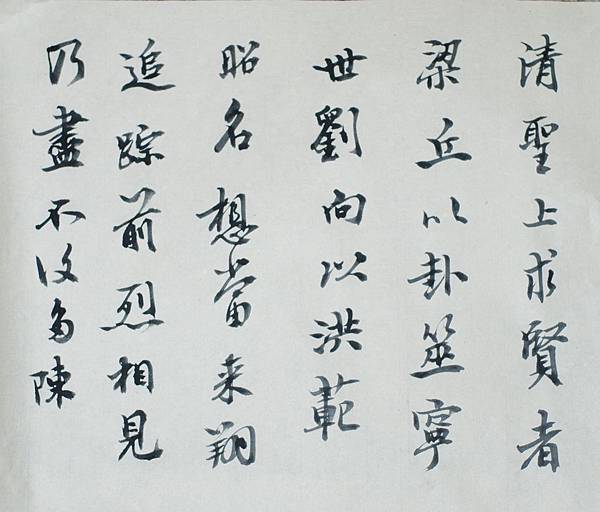 清聖上求賢者
梁丘以卦筮寧
世劉向以洪範
昭名想當来翔
追踪前烈相見
乃盡不復多陳